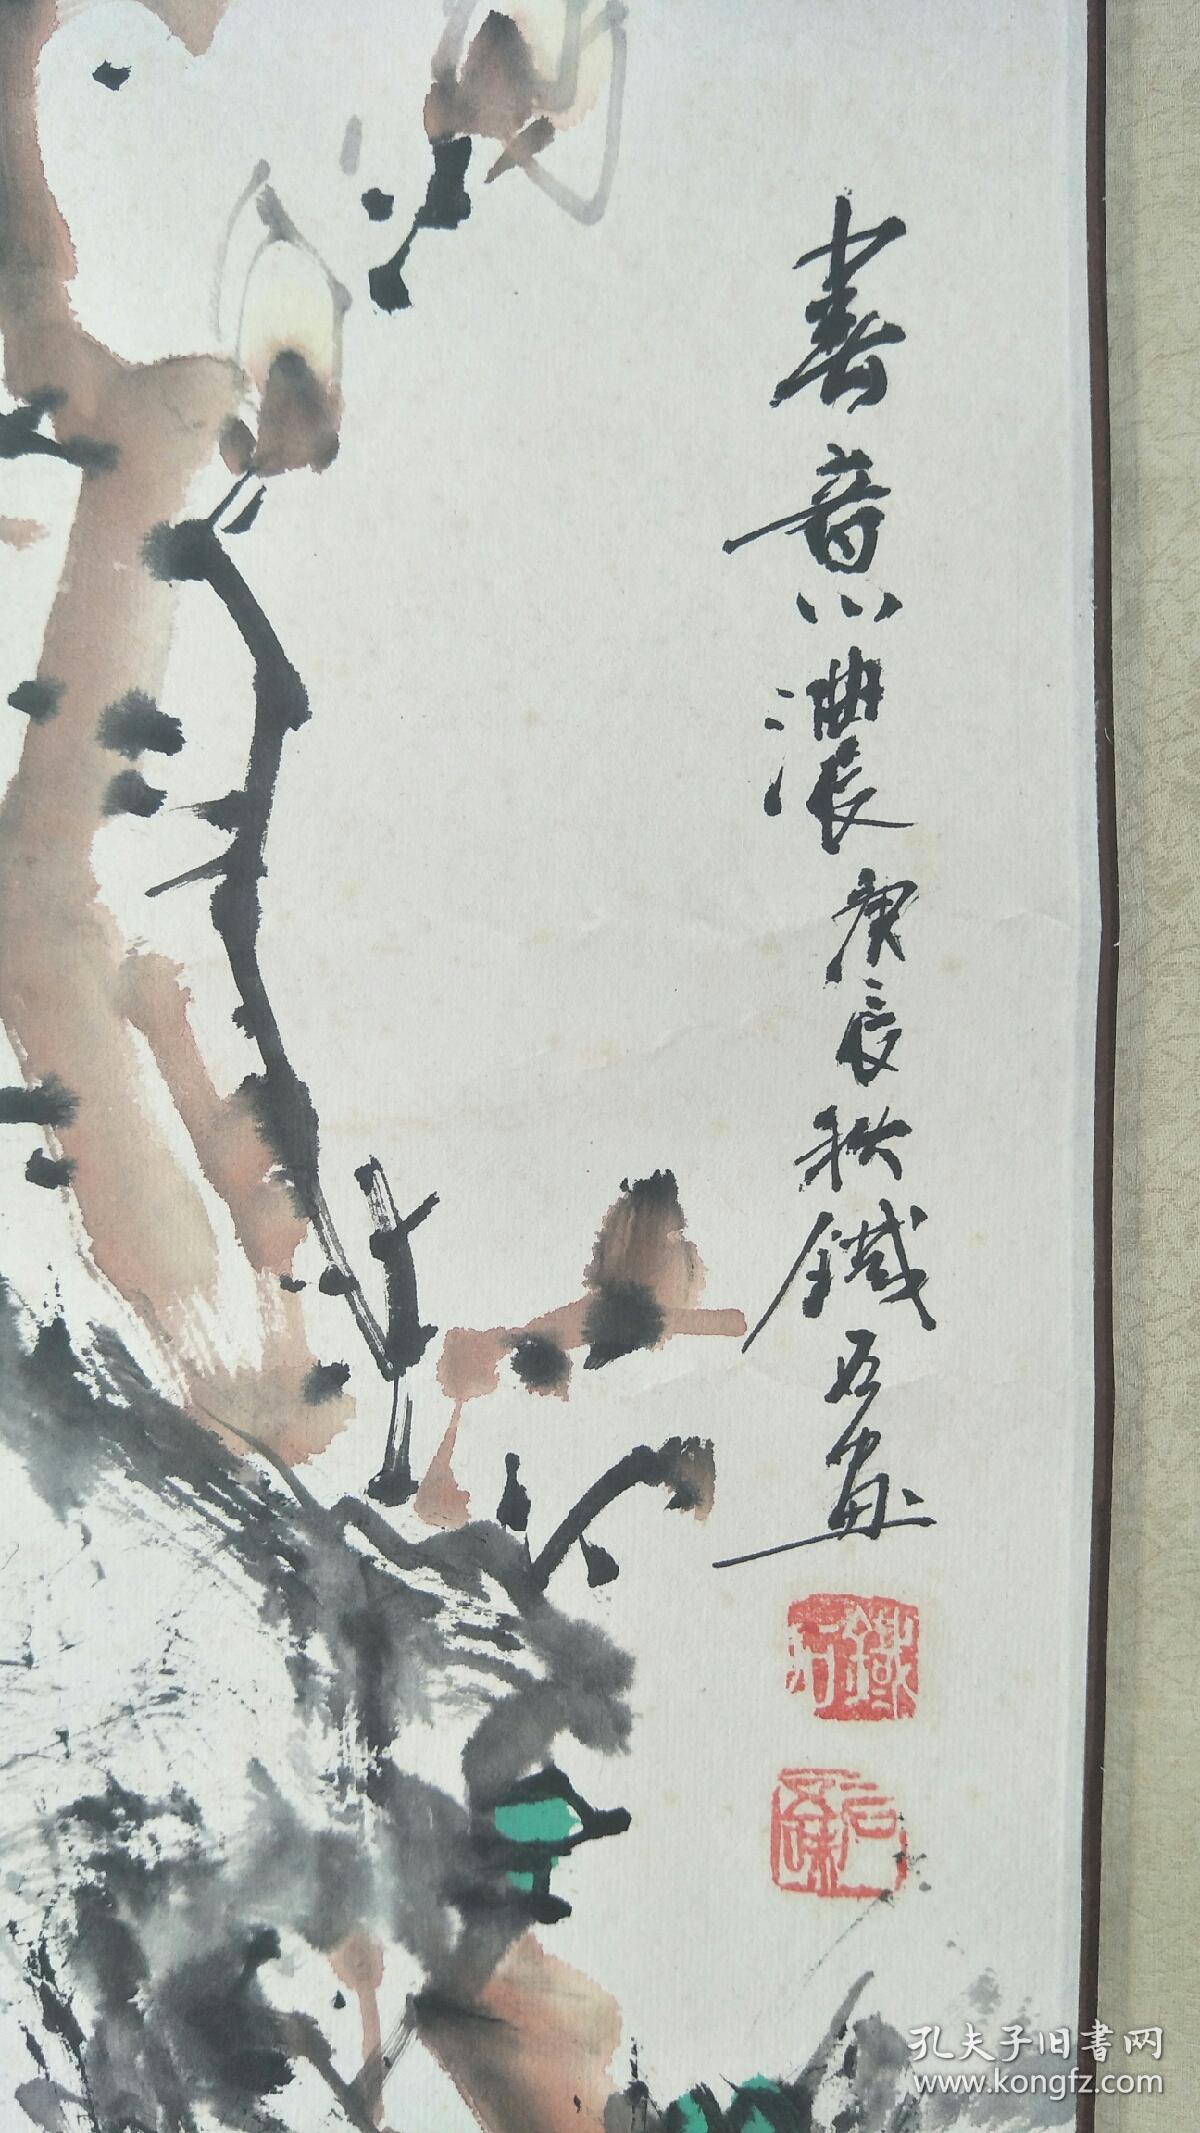 春意濃庚辰秋鐵石画
鐵石
孔夫子旧書网
www.kongfz.com